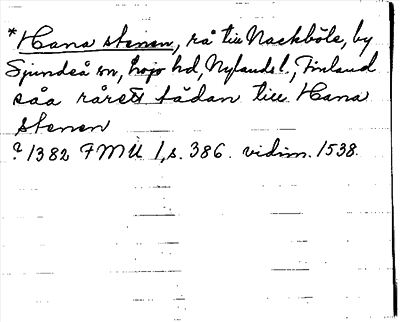 *Hana stenen, rå till Nackböle, by
Sjundeå sn, Lojo hd, Nylands l., Finland
såa råret sådan till Hana
stenen
? 1382 FMU 1, s. 386. vidim. 1538.